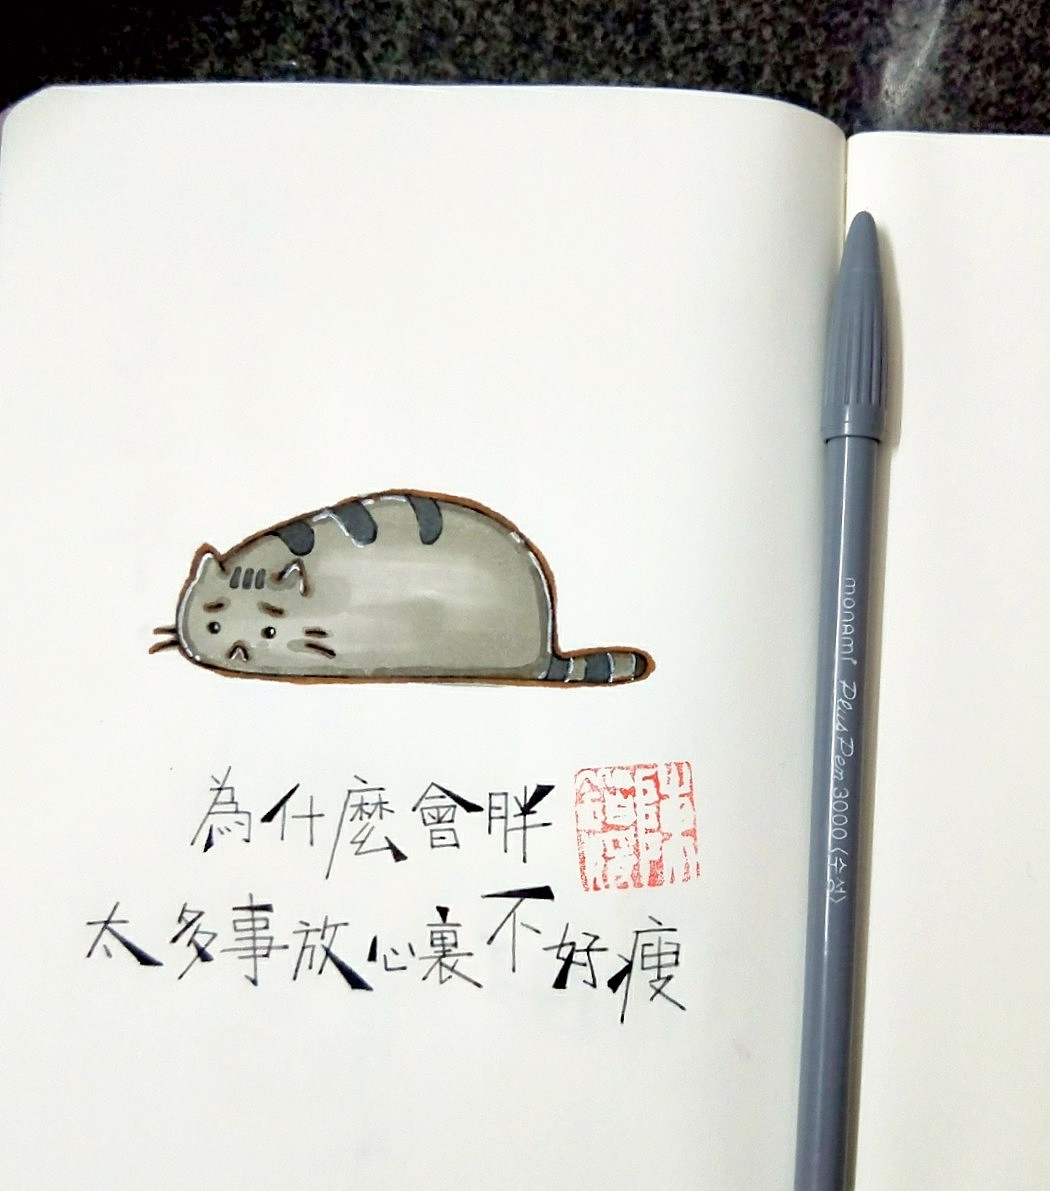 為什麼會胖
太多事放心裏不好瘦
monami Plus Pen 3000 (수성)